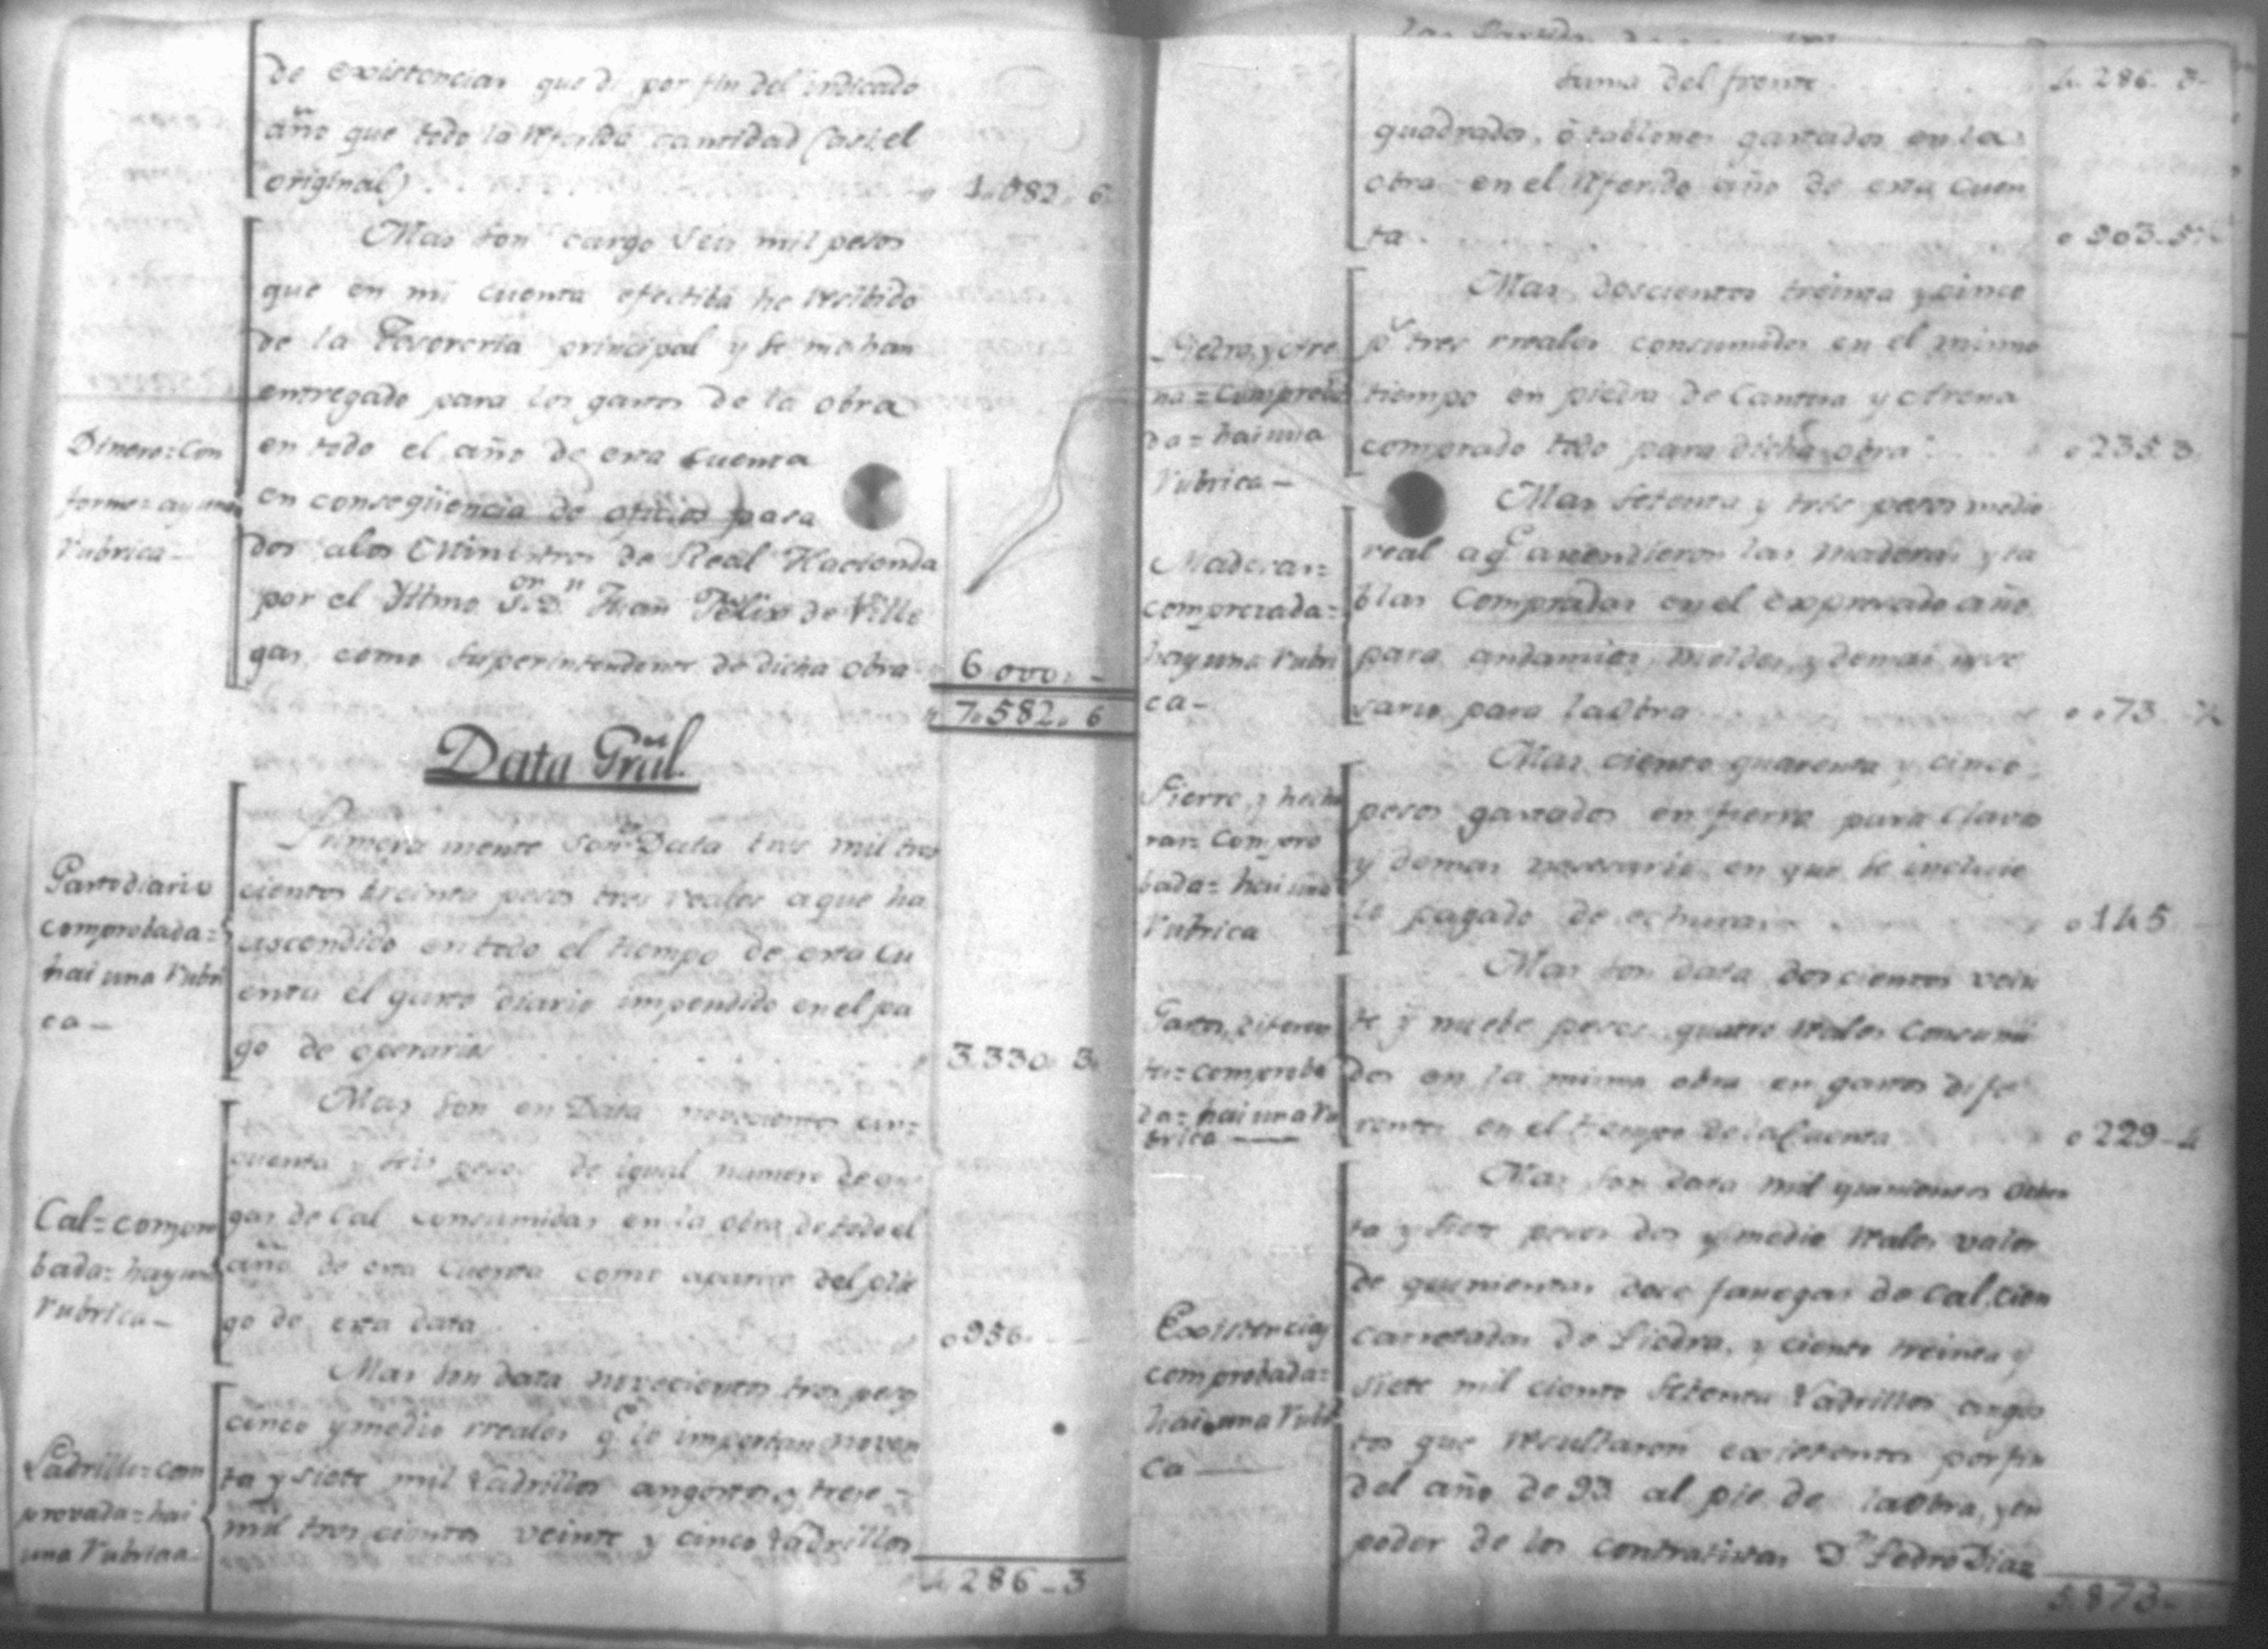 de existencias que di por fin del indicado
año que todo la referida cantidad (asi el
original) 1.582. 6.
Mas son cargo seis mil pesos
que en mi cuenta efectiba he recibido
de la Tesoreria principal y se me han
entregado para los gastos de la obra
en todo el año de esta cuenta
en conseqüencia de oficios pasa
dos alos Ministros de Real Hacienda
por el Yltmo Sor. Dn. Juan Felix de Ville
gas, como Superintendente de dicha obra 6.000. -
Dinero = Con
forme = ay una
rubrica -
7.582. 6
Data Gräl.
Primera mente son Data tres mil tres
cientos treinta pesos tres reales a que ha
ascendido en todo el tiempo de esta cu
enta el gasto diario impendido en el pa
go de operarios 3.330. 3.
Gasto diario
comprobada =
hai una rubri
ca -
Mas son en Data novecientos cin=
cuenta y seis pesos de igual numero de
gas de Cal consumidas en la obra de todo el
año de esta Cuenta como aparece del plie
go de esta data 0956. -
Cal = compro
bada = hay una
rubrica -
Mas son data novecientos tres pesos
cinco y medio rreales q.e lo importan noven
ta y siete mil Ladrillos angostos y trese -
mil tres cientos veinte y cinco Ladrillos
Ladrillo = com
provada = hai
una rubrica
4.286 - 3
suma del frente 4.286. 3.
quadrados, ô tablones gastados en la
obra en el referido año de esta cuen
ta. 0903. 5.
Mas doscientos treinta y cinco
p.s tres rreales consumidos en el mismo
tiempo en piedra de Cantera y
comprado todo para dicha obra 0235. 3.
na = Comproba
da = hai una
rubrica -
Mas Setenta y tres pesos medio
real a q.e asendieron las maderas y ta
blas Compradas en el expresado año
para andamios, moldes, y demas nese
sario para la Obra 0073. ½
Maderas =
comprovada =
hay una rubri
ca -
Mas ciento quarenta y cinco
pesos gastados en fierro para Clavo
y demas nesesario en que se incluie
lo pagado de echuras 0145
Fierro, y hechu
ras = Compro
bada = hai una
rubrica
Mas son data dos cientos vein
te y nuebe pesos quatro reales Consumi
dos en la misma obra en gastos dife
rentes en el tiempo de la Cuenta 0229 - 4
Gastos, diferen
tes = comproba
da = hai una ru
brica -
Mas son data mil quinientos ochen
ta y siete pesos dos y medio reales valor
de quinientas doce fanegas de Cal, cien
carretadas de Piedra, y ciento treinta y
siete mil ciento setenta Ladrillos angos
tos que resultaron existentes por fin
del año de 93 al pie de la Obra, y en
poder de los contratistas Dn Pedro Diaz
Existencias
comprobada =
hai una rubri
ca -
5.873 -